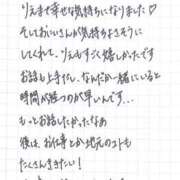 りえまで幸せな気持ちになりました♡
そしておにいさんが気持ちよさそうに
してくれて、りえもすごく嬉しかったです
お話も上手だし、なんだか一緒にいると
時間が経つのが早いんです…
もっとお話したかったなぁ
後は、お仕事とか地元のコトも
たくさんききたい！